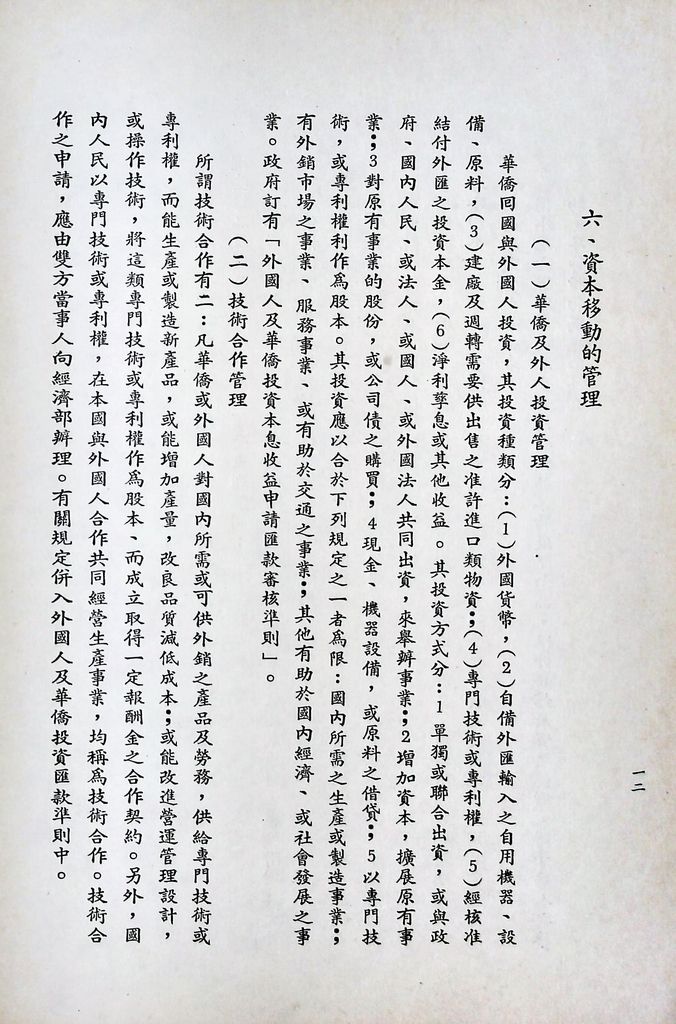 六、資本移動的管理
(一)華僑及外人投資管理
華僑回國與外國人投資，其投資種類分：(1)外國貨幣，(2)自備外匯輸入之自用機器、設
備、原料，(3)建廠及週轉需要供出售之准許進口類物資；(4)專門技術或專利權，(5)經核准
結付外匯之投資本金，(6)淨利孳息或其他收益。其投資方式分：1單獨或聯合出資，或與政
府、國內人民、或法人、或國人、或外國法人共同出資，來舉辦事業；2增加資本，擴展原有事
業；3對原有事業的股份，或公司債之購買；4現金、機器設備，或原料之借貸；5以專門技
術，或專利權利作為股本。其投資應以合於下列規定之一者為限：國內所需之生產或製造事業；
有外銷市場之事業、服務事業、或有助於交通之事業；其他有助於國內經濟、或社會發展之事
業。政府訂有「外國人及華僑投資本息收益申請匯款審核準則」。
(二)技術合作管理
所謂技術合作有二：凡華僑或外國人對國內所需或可供外銷之產品及勞務，供給專門技術或
專利權，而能生產或製造新產品，或能增加產量，改良品質減低成本；或能改進營運管理設計，
或操作技術，將這類專門技術或專利權作為股本、而成立取得一定報酬金之合作契約。另外，國
內人民以專門技術或專利權，在本國與外國人合作共同經營生產事業，均稱為技術合作。技術合
作之申請，應由雙方當事人向經濟部辦理。有關規定併入外國人及華僑投資匯款準則中。
一二